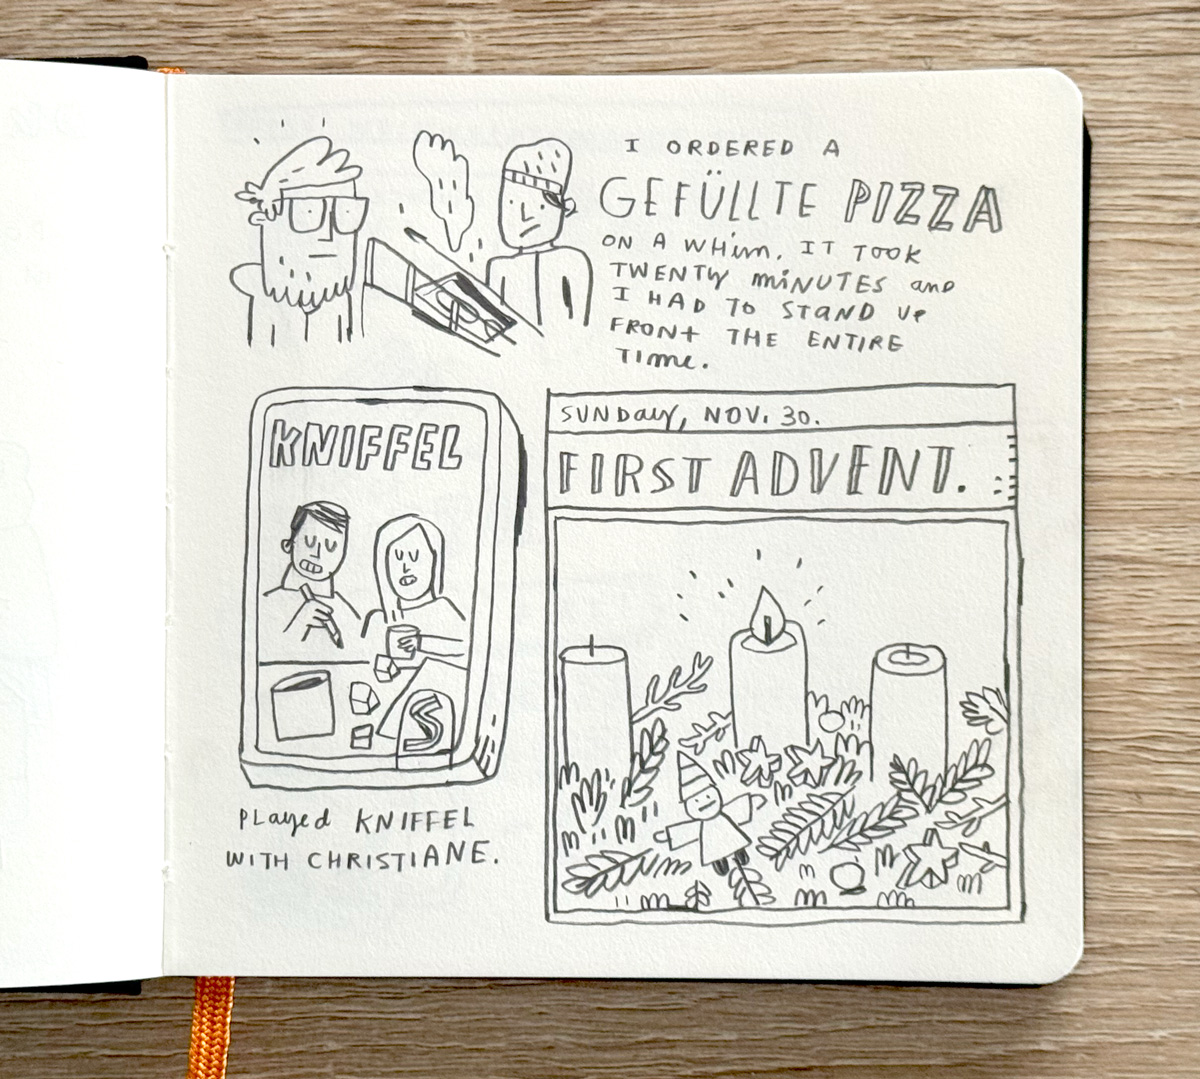 I ORDERED A
GEFÜLLTE PIZZA
ON A WHiM. IT TOOK
TWENTY MiNUTES AND
I HAD TO STAND UP
FRONT THE ENTIRE
TIME.
KNIFFEL
S
PLAYED KNIFFEL
WITH CHRISTIANE.
SUNDAY, NOV. 30.
FIRST ADVENT.